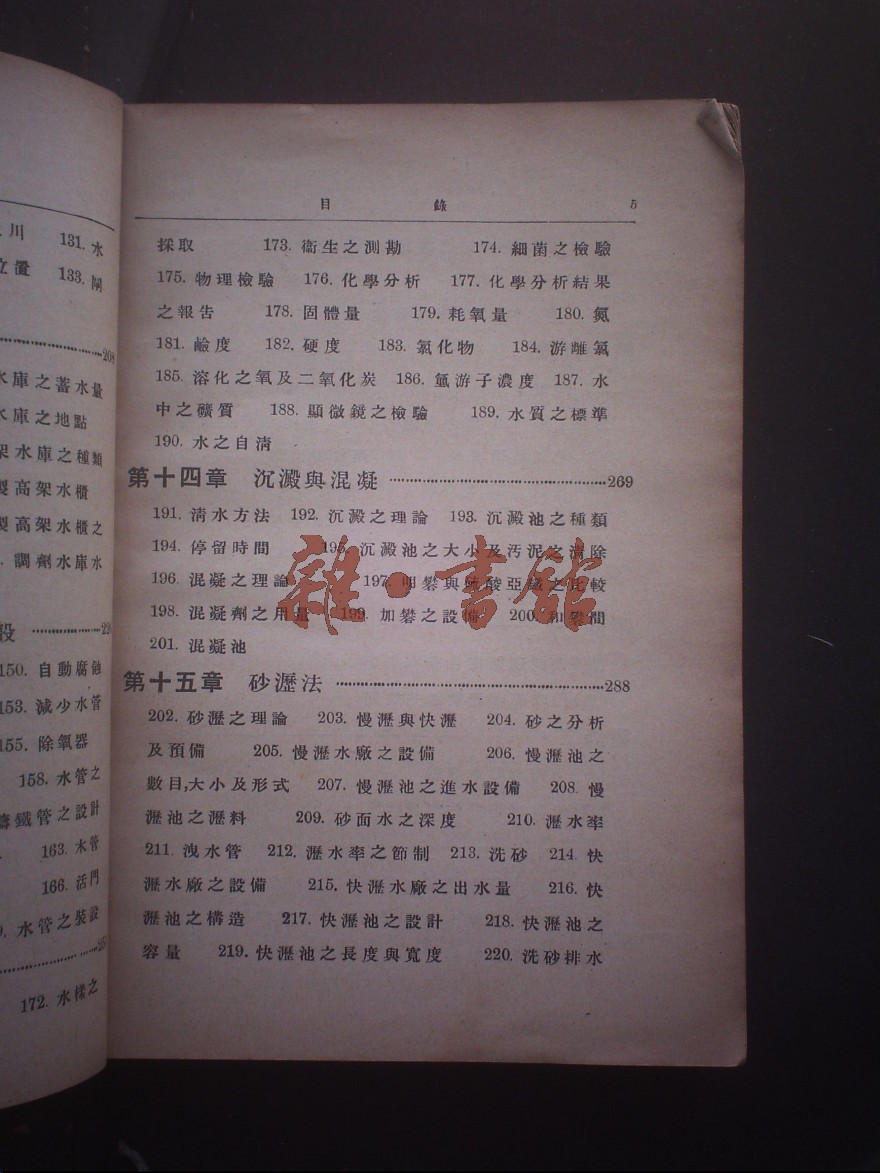 川 131. 水
133. 閘
208
水庫之蓄水量
水庫之地點
架水庫之種類
製高架水櫃
製高架水櫃之
調劑水庫水
設
150. 自動腐蝕
153. 減少水管
155. 除氧器
158. 水管之
鑄鐵管之設計
163. 木管
166. 活門
水管之裝設
172. 水樣之
目 錄 5
採取 173. 衞生之測勘 174. 細菌之檢驗
175. 物理檢驗 176. 化學分析 177. 化學分析結果
之報告 178. 固體量 179. 耗氧量 180. 氮
181. 鹼度 182. 硬度 183. 氯化物 184. 游離氯
185. 溶化之氧及二氧化炭 186. 氫游子濃度 187. 水
中之礦質 188. 顯微鏡之檢驗 189. 水質之標準
190. 水之自淸
第十四章 沉澱與混凝 269
191. 淸水方法 192. 沉澱之理論 193. 沉澱池之種類
194. 停留時間 195. 沉澱池之大小及汚泥之淸除
196. 混凝之理論 197. 明礬與硫酸亞鐵之比較
198. 混凝劑之用量 199. 加礬之設備 200. 和礬間
201. 混凝池
第十五章 砂瀝法 288
202. 砂瀝之理論 203. 慢瀝與快瀝 204. 砂之分析
及預備 205. 慢瀝水廠之設備 206. 慢瀝池之
數目,大小及形式 207. 慢瀝池之進水設備 208. 慢
瀝池之瀝料 209. 砂面水之深度 210. 瀝水率
211. 洩水管 212. 瀝水率之節制 213. 洗砂 214. 快
瀝水廠之設備 215. 快瀝水廠之出水量 216. 快
瀝池之構造 217. 快瀝池之設計 218. 快瀝池之
容量 219. 快瀝池之長度與寬度 220. 洗砂排水
雜·書館